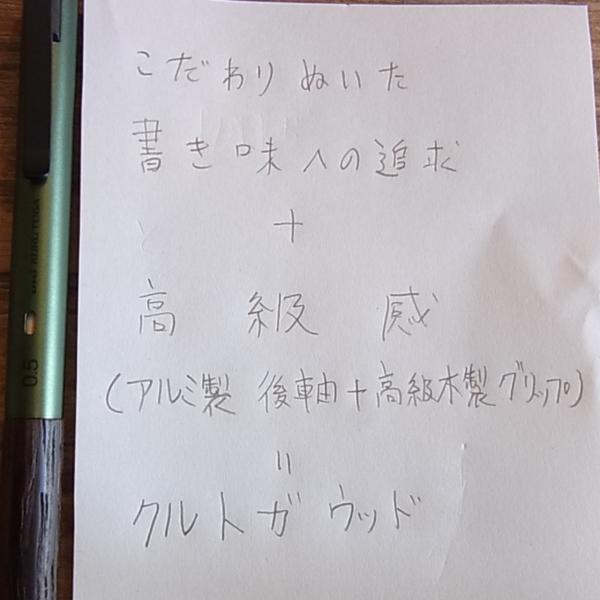 こだわりぬいた
書き味への追求
+
高級感
(アルミ製 後軸+高級木製グリップ)
=
クルトガ ウッド
KURU TOGA
0.5